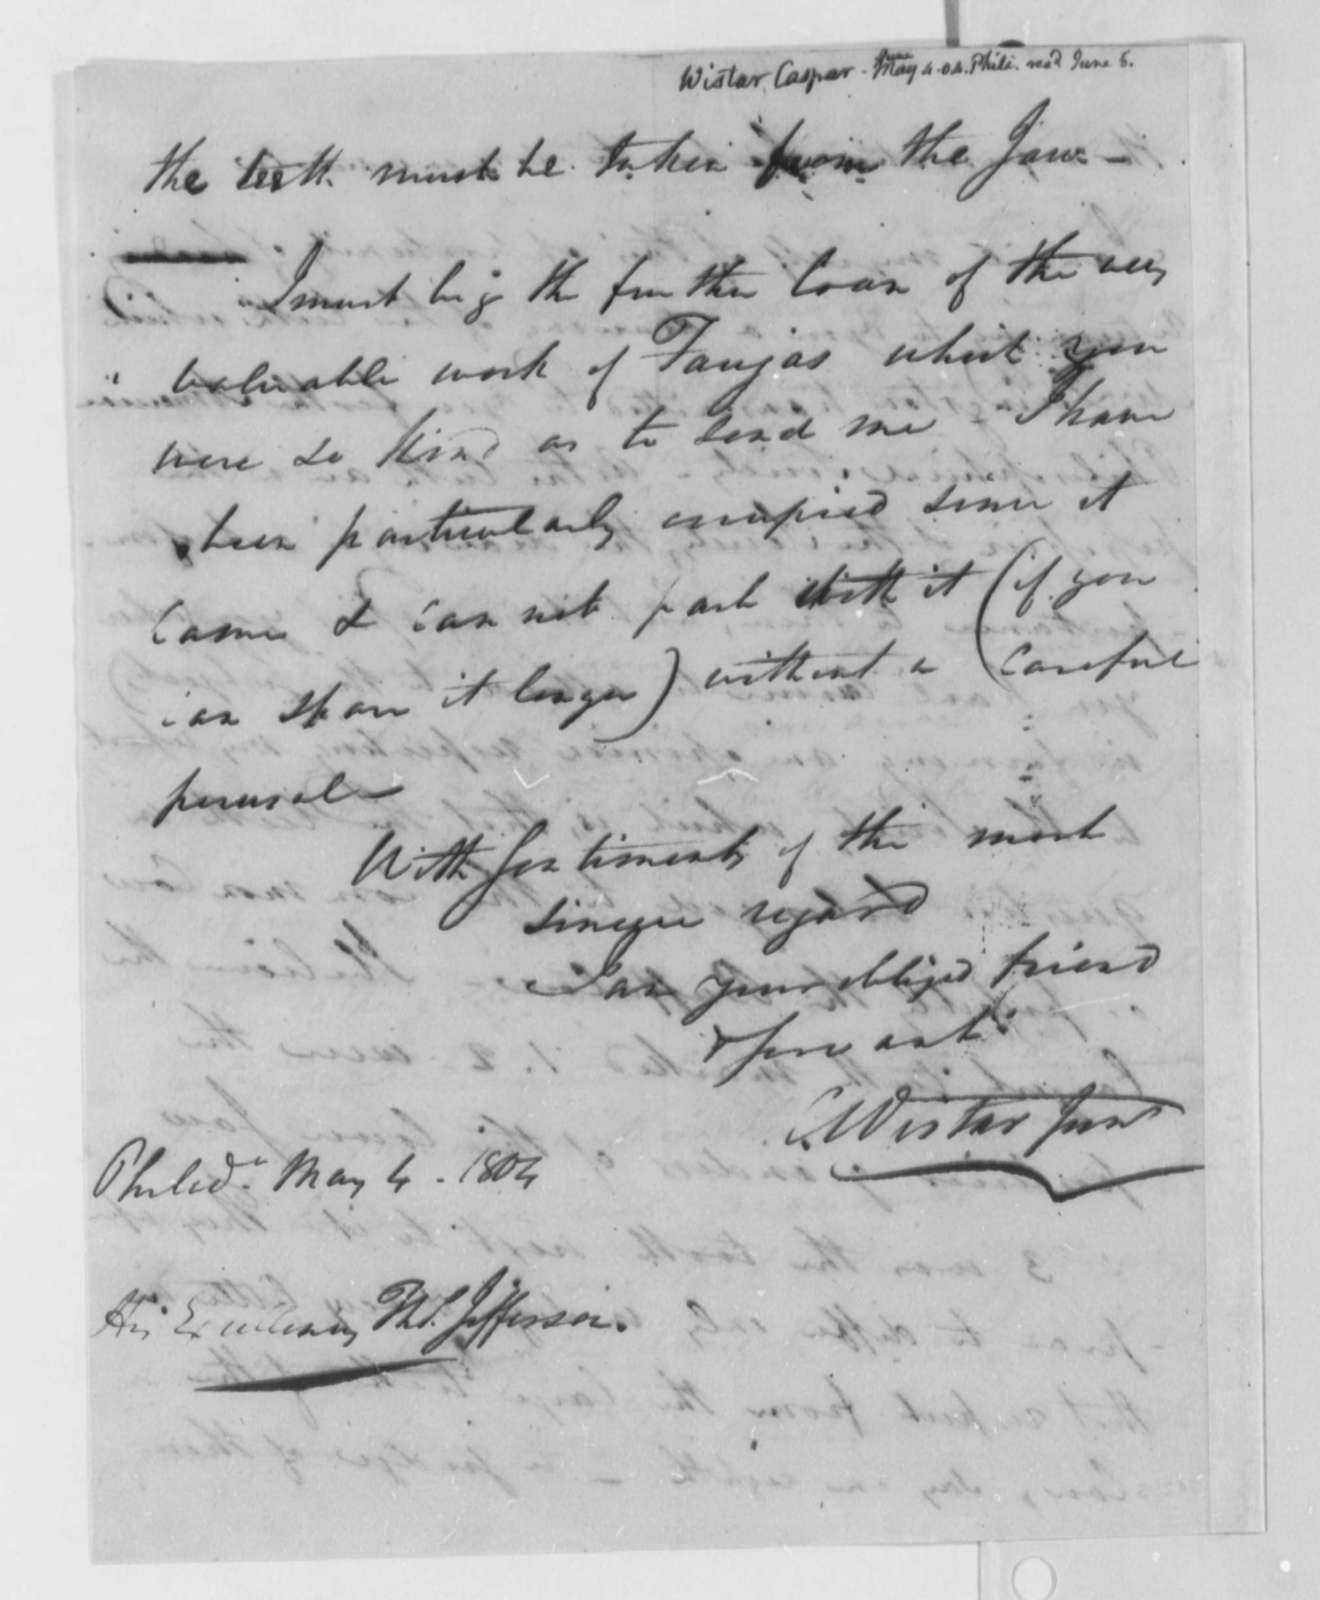 Wistar Caspar. June May 4. 04. Phila. recd June 6.
the teeth must be taken from the Jaw—
I must beg the further loan of the very
valuable work of Faujas which you
were so kind as to send me I have
been particularly occupied since it
came & can not part with it (if you
can spare it longer) without a careful
perusal—
With sentiments of the most
sincere regard
I am your obliged friend
& servant
C. Wistar Junr
Philada. May 4. 1804
His Excellency Ths. Jefferson.